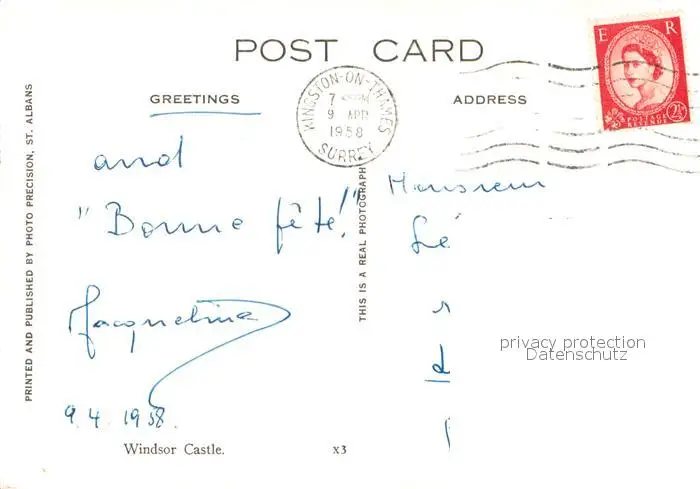 POST CARD
GREETINGS
ADDRESS
and
"Bonne fête!"
Jacqueline
9.4.1958.
Windsor Castle.
x3
PRINTED AND PUBLISHED BY PHOTO PRECISION, ST. ALBANS
THIS IS A REAL PHOTOGRAPH
KINGSTON-ON-THAMES
7
9 APR
1958
SURREY
E R
POSTAGE
REVENUE
2½
Monsieur
privacy protection
Datenschutz